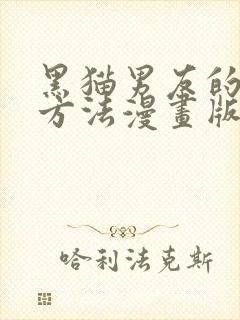 黑猫男友的
方法漫畫版
哈利法克斯